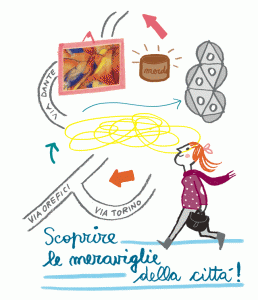 VIA DANTE
mondo
VIA OREFICI
VIA TORINO
Scoprire
le meraviglie
della città!